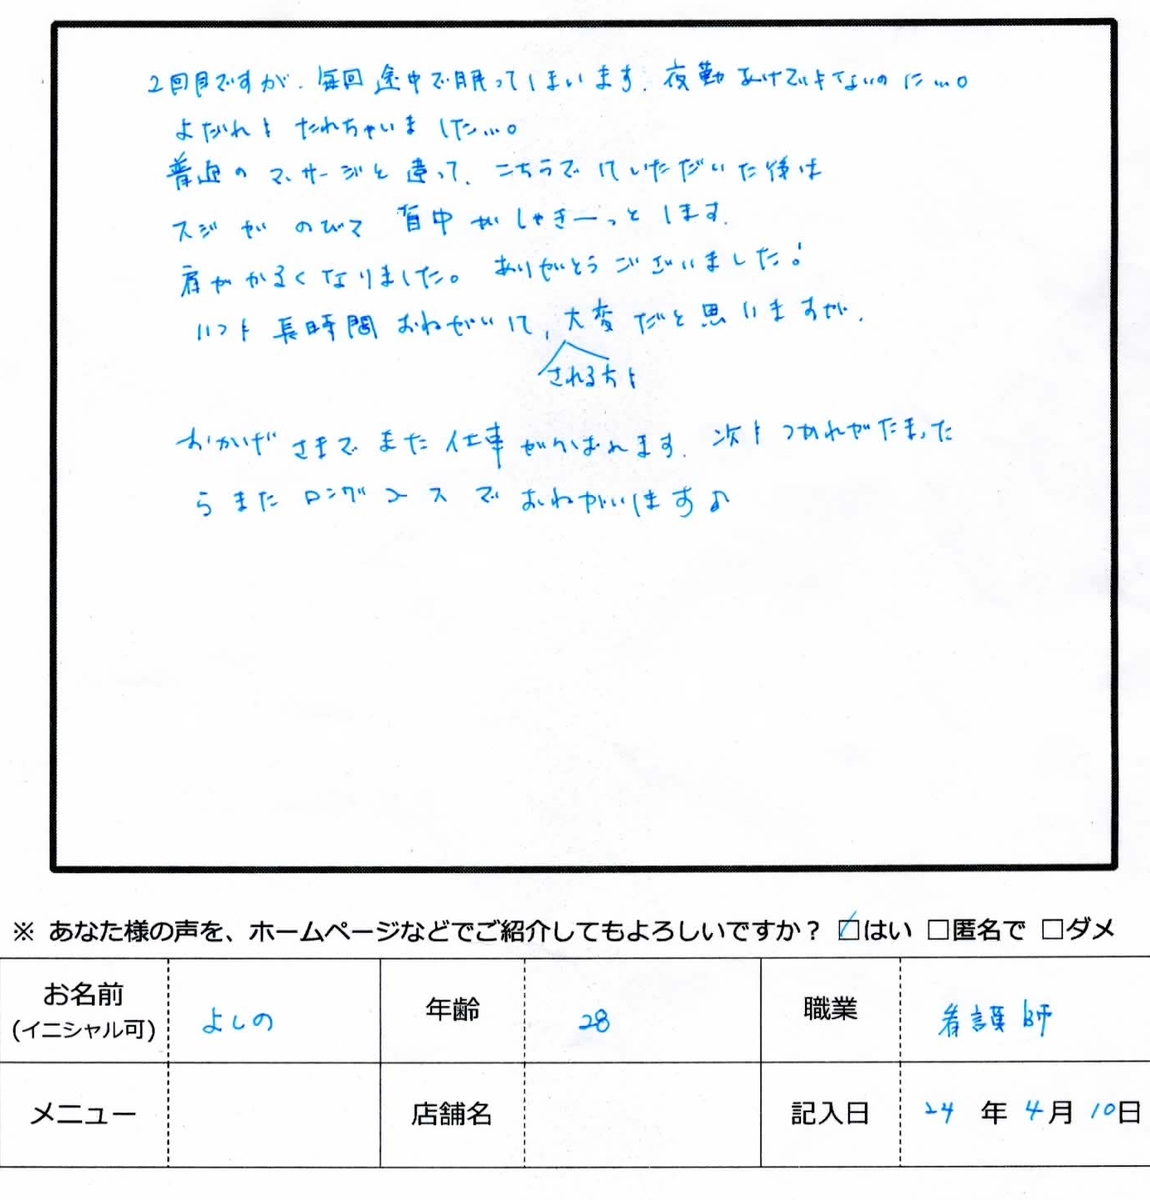 2回目ですが、毎回途中で眠ってしまいます。夜勤あけでもないのに…。
よだれもたれちゃいました…。
普通のマッサージと違って、こちらでしていただいた後は
スジがのびて背中がしゃきーっとします。
肩がかるくなりました。ありがとうございました!
いつも長時間おねがいして、大変だと思いますが、
される方も
おかげさまでまた仕事がんばれます。次もつかれがたまった
らまたロングコースでおねがいします♪
※ あなた様の声を、ホームページなどでご紹介してもよろしいですか? ☑はい □匿名で □ダメ
お名前 よしの 年齢 28 職業 看護師
(イニシャル可)
メニュー 店舗名 記入日 24 年 4月 10日